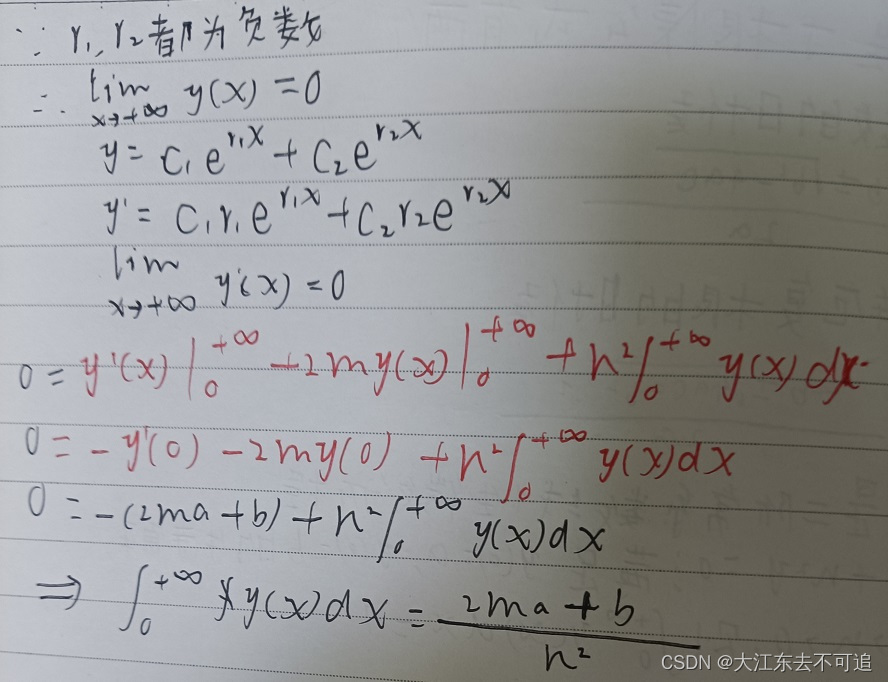 ∵ r₁、r₂都为负数
∴ lim x→+∞ y(x) = 0
y = C₁e^{r₁x} + C₂e^{r₂x}
y' = C₁r₁e^{r₁x} + C₂r₂e^{r₂x}
lim x→+∞ y'(x) = 0
0 = y'(x)|₀^{+∞} + 2my(x)|₀^{+∞} + n²∫₀^{+∞} y(x)dx
0 = -y'(0) - 2my(0) + n²∫₀^{+∞} y(x)dx
0 = -(2ma+b) + n²∫₀^{+∞} y(x)dx
⇒ ∫₀^{+∞} y(x)dx = (2ma+b)/n²
CSDN @大江东去不可追